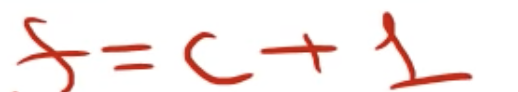 f = c + 1